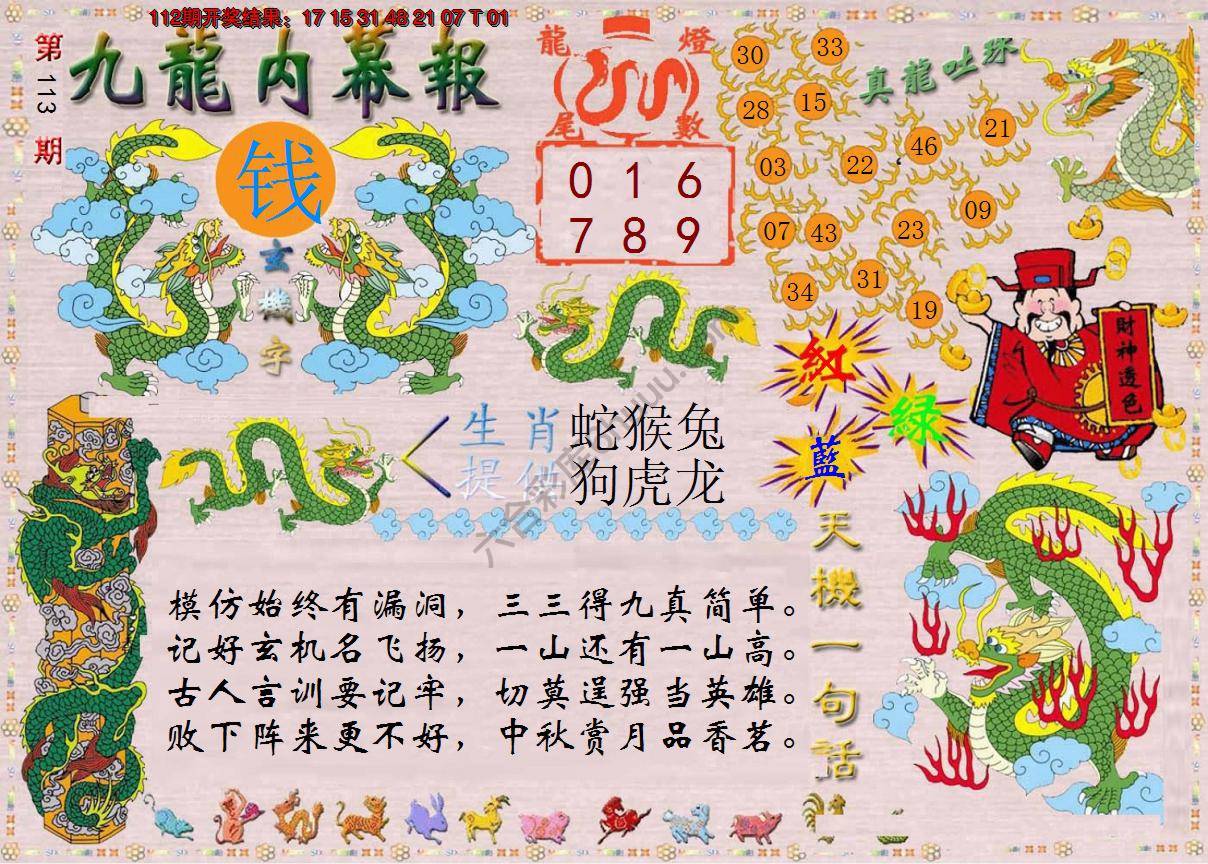 112期开奖结果：17 15 31 48 21 07 T 01
第113期
九龍内幕報
钱
玄機字
龍燈
尾數
0 1 6
7 8 9
真龍吐珠
30
33
28
15
46
21
03
22
09
07
43
23
34
31
19
財神透色
紅
綠
藍
生肖
提供
蛇猴兔
狗虎龙
天機一句話
模仿始终有漏洞，三三得九真简单。
记好玄机名飞扬，一山还有一山高。
古人言训要记牢，切莫逞强当英雄。
败下阵来更不好，中秋赏月品香茗。